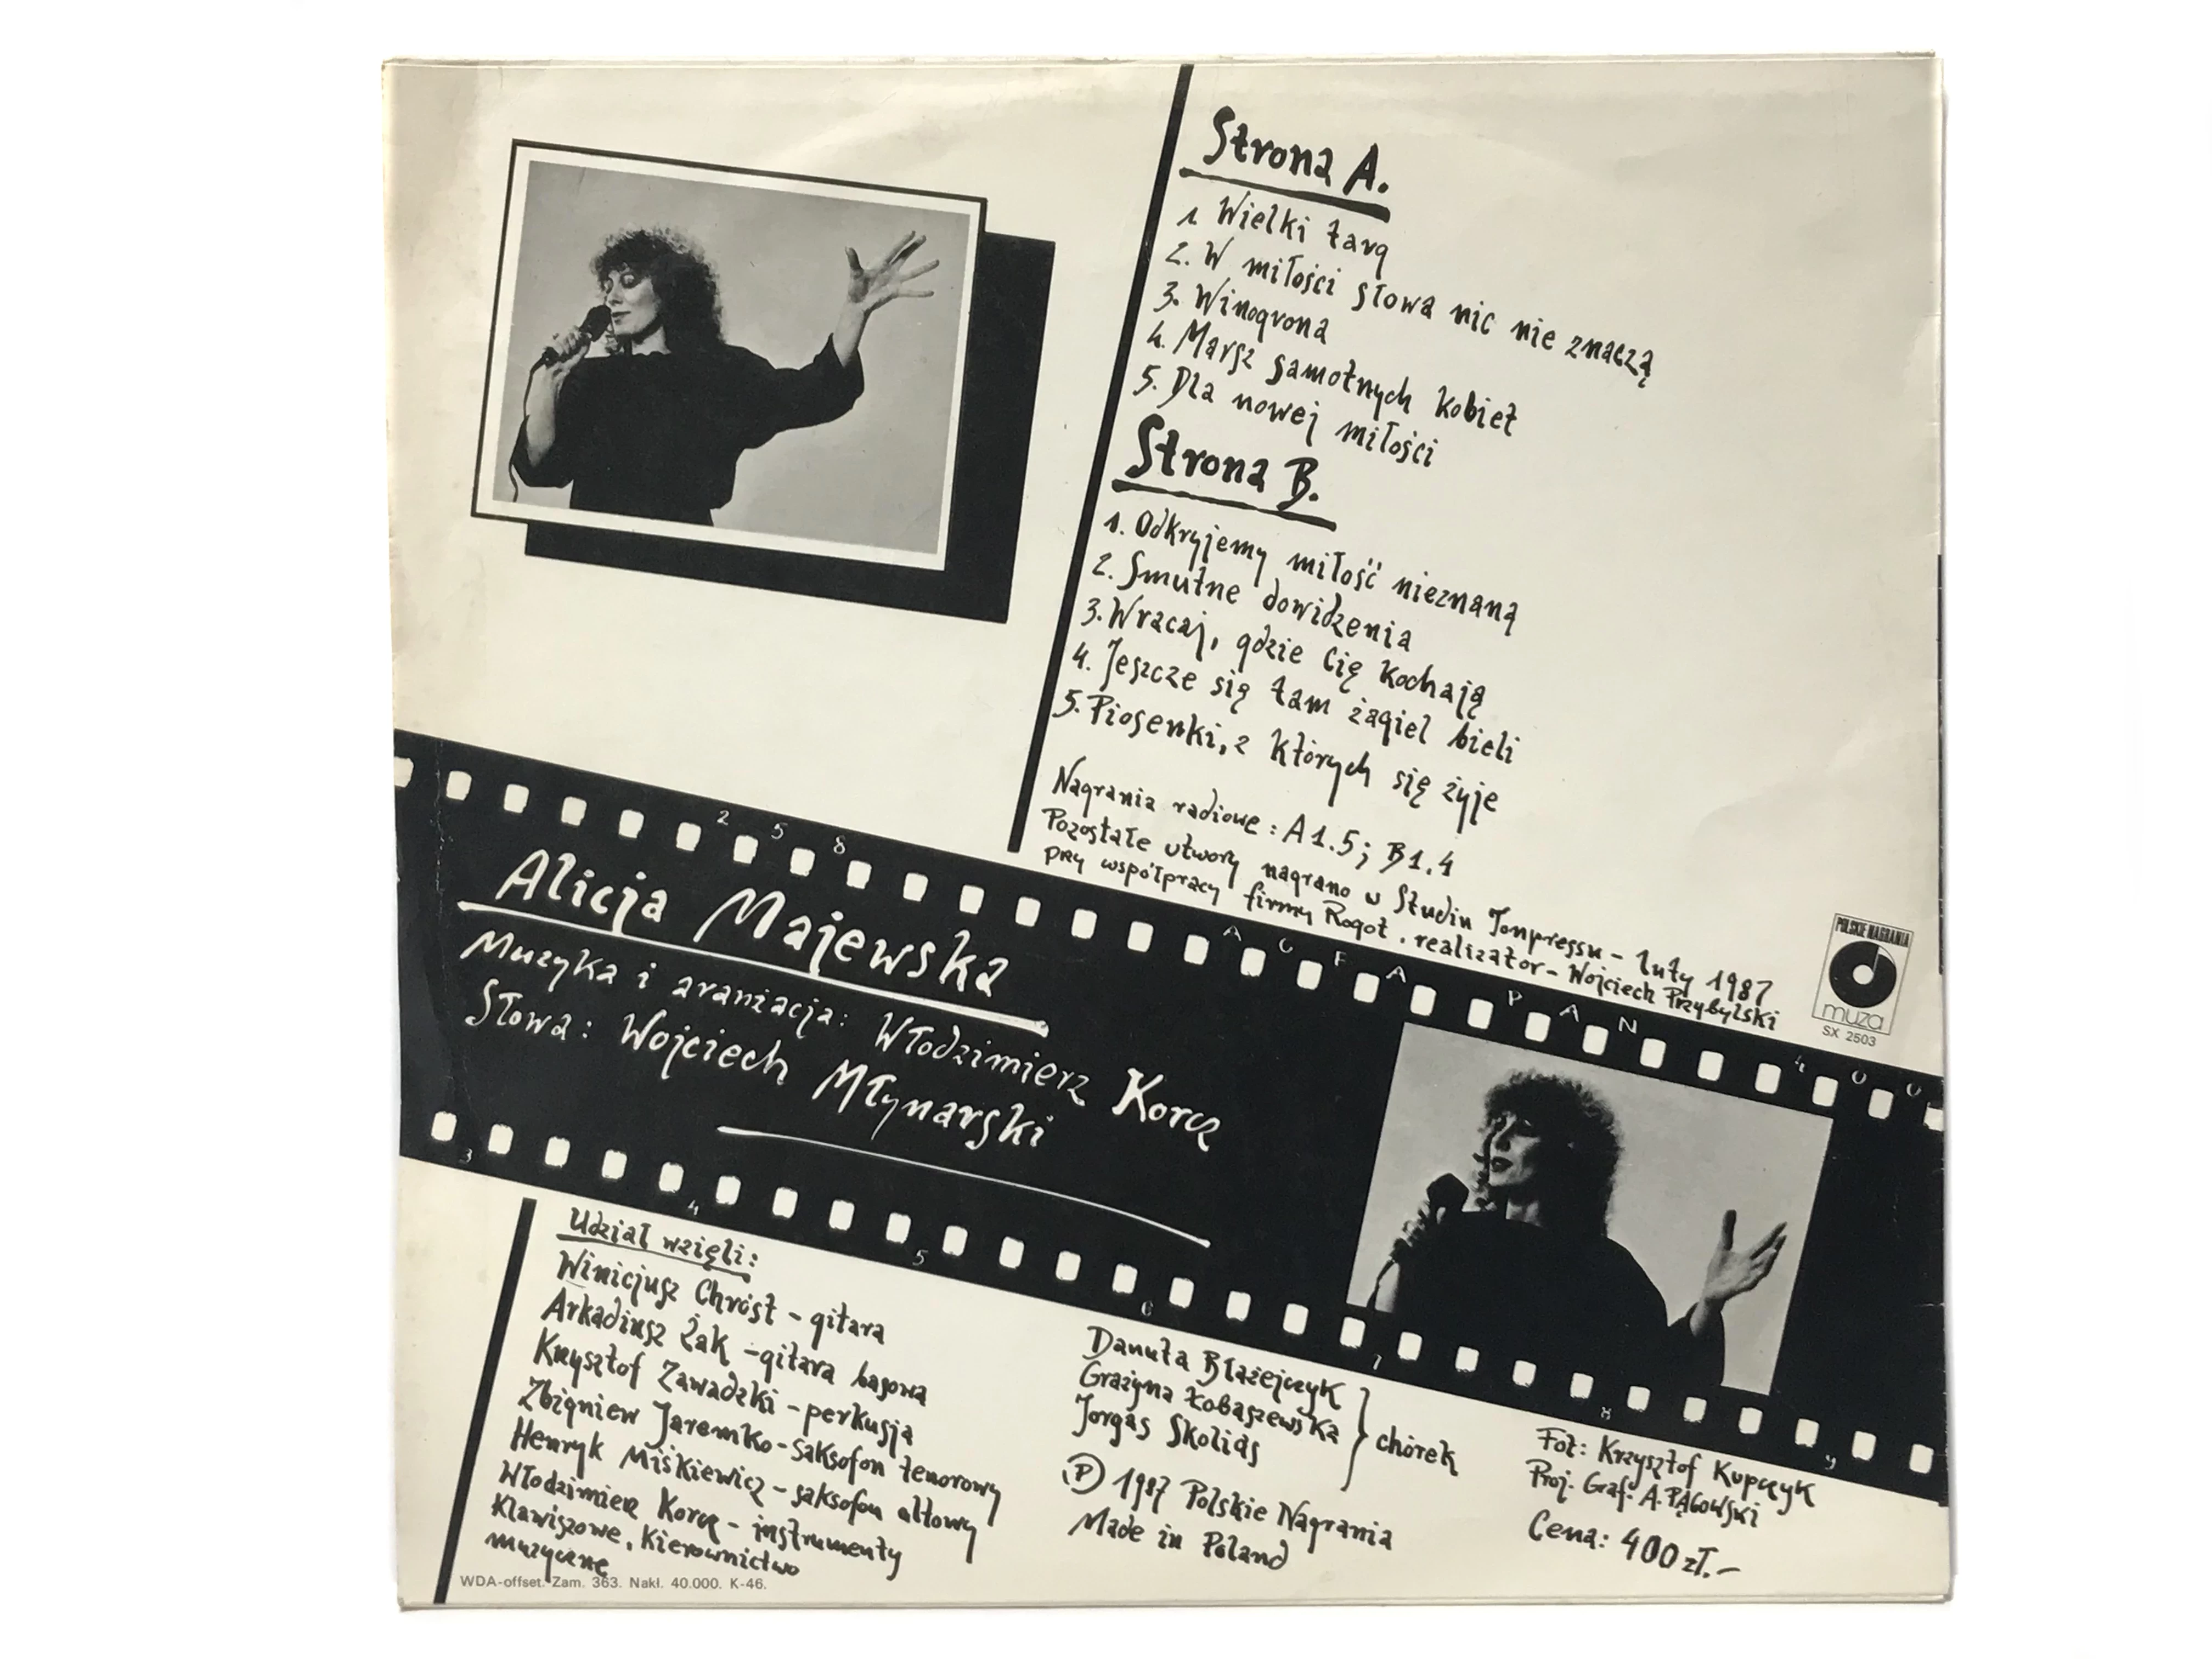 Strona A.
1 Wielki targ
2. W miłości słowa nic nie znaczą
3. Winogrona
4. Marsz samotnych kobiet
5. Dla nowej miłości
Strona B.
1. Odkryjemy miłość nieznaną
2. Smutne dowidzenia
3. Wracaj, gdzie Cię kochają
4. Jeszcze się tam żagiel bieli
5. Piosenki, z których się żyje
Nagrania radiowe: A1.5; B1.4
Pozostałe utwory nagrano w Studiu Tonpressu - luty 1987
przy współpracy firmy Rogot. realizator - Wojciech Przybylski
POLSKIE NAGRANIA
muza
SX 2503
258
AGFA PAN 400
Alicja Majewska
Muzyka i aranżacja: Włodzimierz Korcz
Słowa: Wojciech Młynarski
3 4 5 6 7 8 9
Udział wzięli:
Winicjusz Chróst - gitara
Arkadiusz Żak - gitara basowa
Krzysztof Zawadzki - perkusja
Zbigniew Jaremko - saksofon tenorowy
Henryk Miśkiewicz - saksofon altowy
Włodzimierz Korcz - instrumenty
Klawiszowe, Kierownictwo
muzyczne
Danuta Błażejczyk
Grażyna Łobaszewska
Jorgas Skolias
chórek
Ⓟ 1987 Polskie Nagrania
Made in Poland
Fot: Krzysztof Kupczyk
Proj. Graf. A. PĄGOWSKI
Cena: 400 zł.-
WDA-offset. Zam. 363. Nakł. 40.000. K-46.